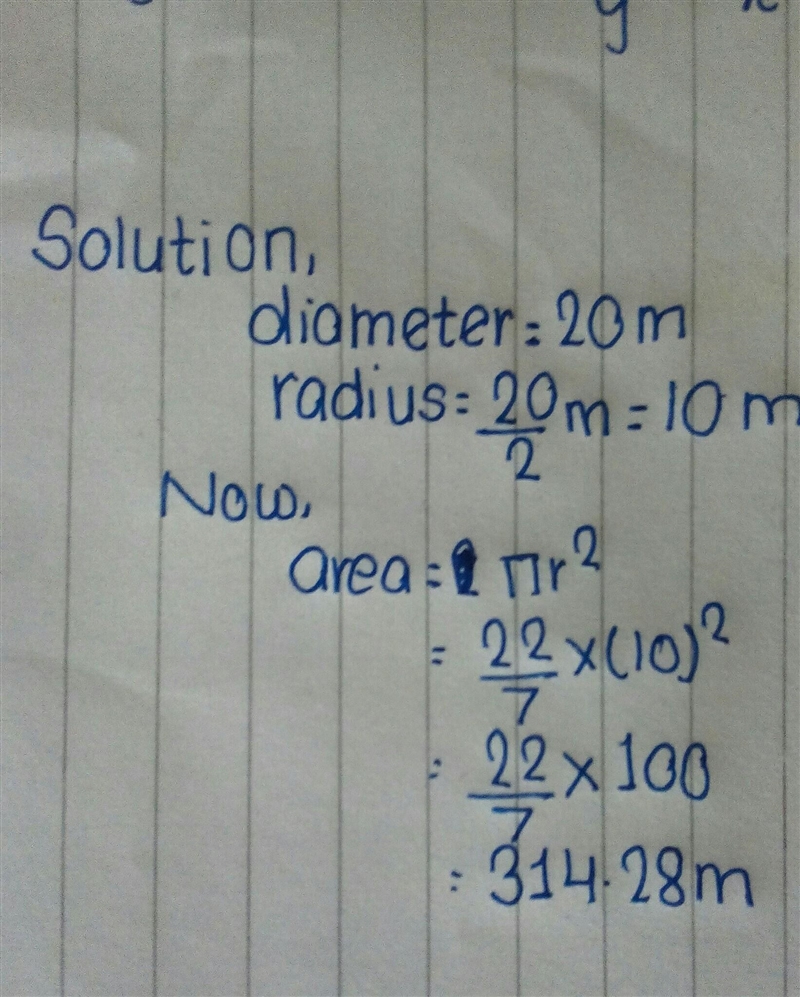 y x
Solution,
diameter = 20 m
radius = 20/2 m = 10 m
Now,
area = πr²
= 22/7 × (10)²
= 22/7 × 100
= 314.28 m